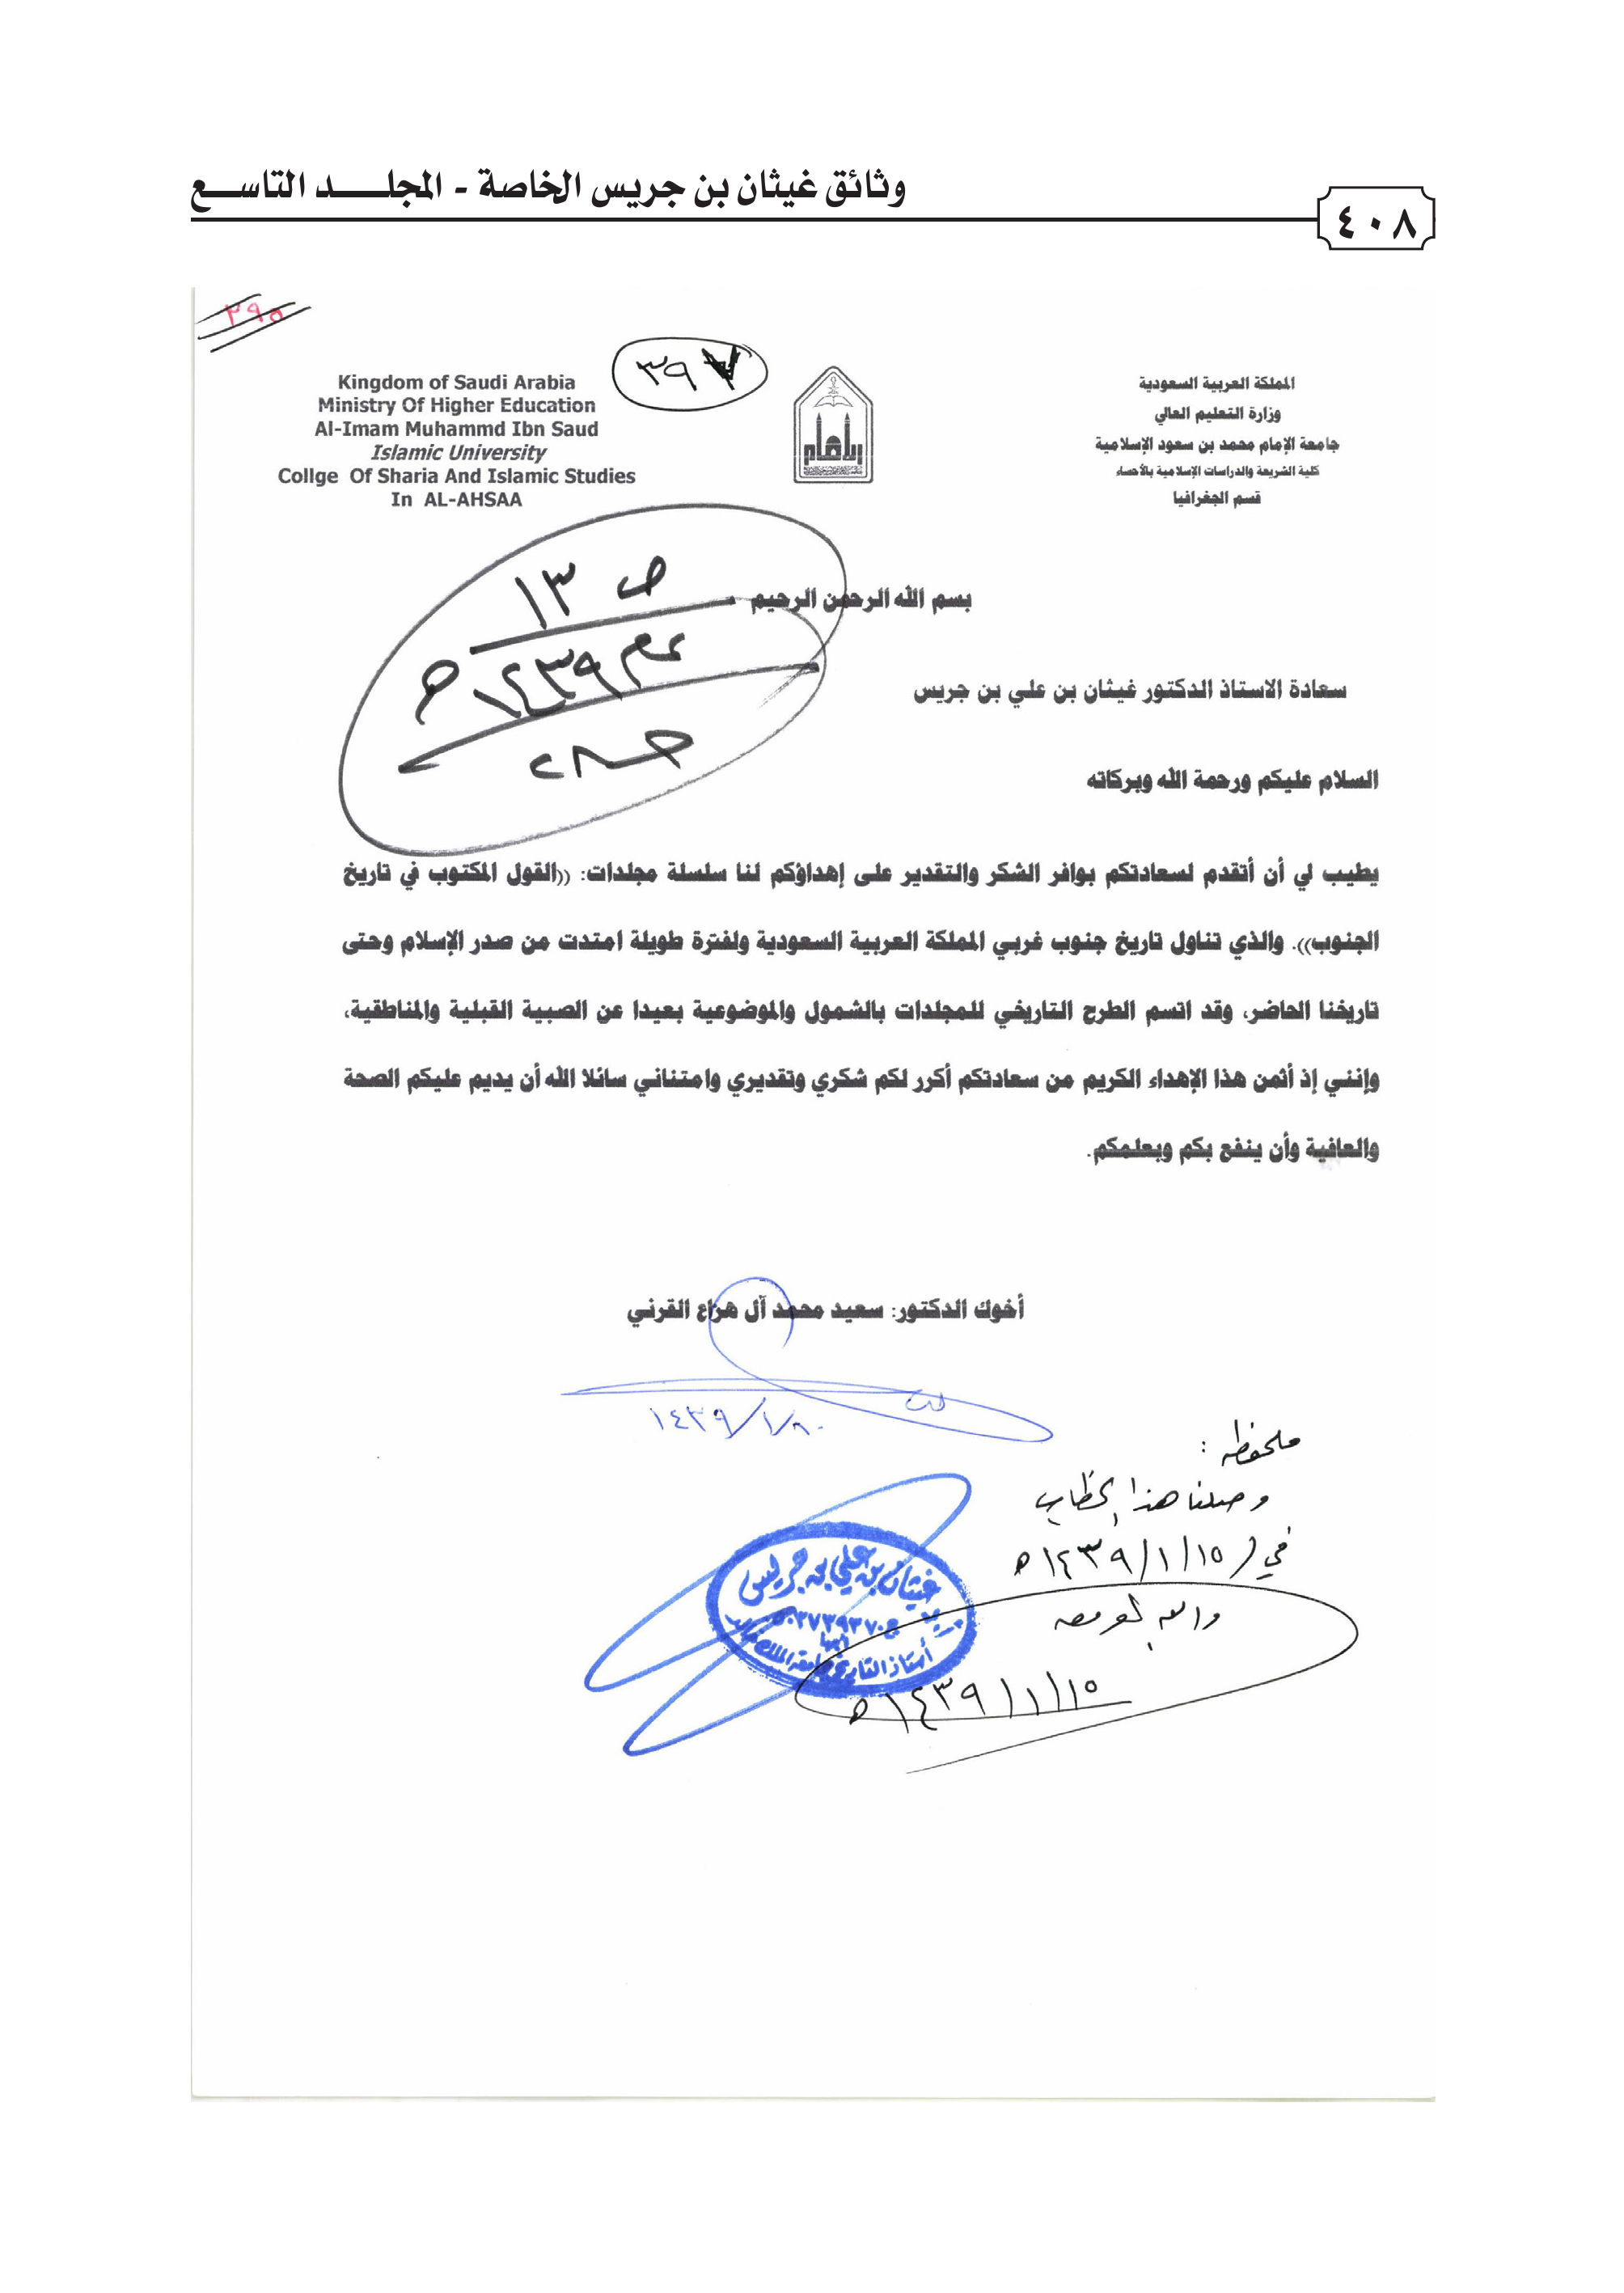 وثائق غيثان بن جريس الخاصة - المجلد التاسع
٤٠٨
٢٩٥
٣٩٧
Kingdom of Saudi Arabia
Ministry Of Higher Education
Al-Imam Muhammd Ibn Saud
Islamic University
Collge Of Sharia And Islamic Studies
In AL-AHSAA
المملكة العربية السعودية
وزارة التعليم العالي
جامعة الإمام محمد بن سعود الإسلامية
كلية الشريعة والدراسات الإسلامية بالأحساء
قسم الجغرافيا
ص ١٣
١٤٣٩ هـ
بسم الله الرحمن الرحيم
سعادة الاستاذ الدكتور غيثان بن علي بن جريس
السلام عليكم ورحمة الله وبركاته
يطيب لي أن أتقدم لسعادتكم بوافر الشكر والتقدير على إهداؤكم لنا سلسلة مجلدات: ((القول المكتوب في تاريخ
الجنوب)). والذي تناول تاريخ جنوب غربي المملكة العربية السعودية ولفترة طويلة امتدت من صدر الإسلام وحتى
تاريخنا الحاضر، وقد اتسم الطرح التاريخي للمجلدات بالشمول والموضوعية بعيدا عن الصبية القبلية والمناطقية،
وإنني إذ أثمن هذا الإهداء الكريم من سعادتكم أكرر لكم شكري وتقديري وامتناني سائلا الله أن يديم عليكم الصحة
والعافية وأن ينفع بكم وبعلمكم.
أخوك الدكتور: سعيد محمد آل هزاع القرني
ملحوظة :
وصلنا هذا الخطاب
في / ١٥/ ١/ ١٤٣٩ هـ
والله الموفق
١٥/ ١/ ١٤٣٩ هـ
غيثان بن علي بن جريس
أستاذ التاريخ بجامعة الملك خالد
أبها